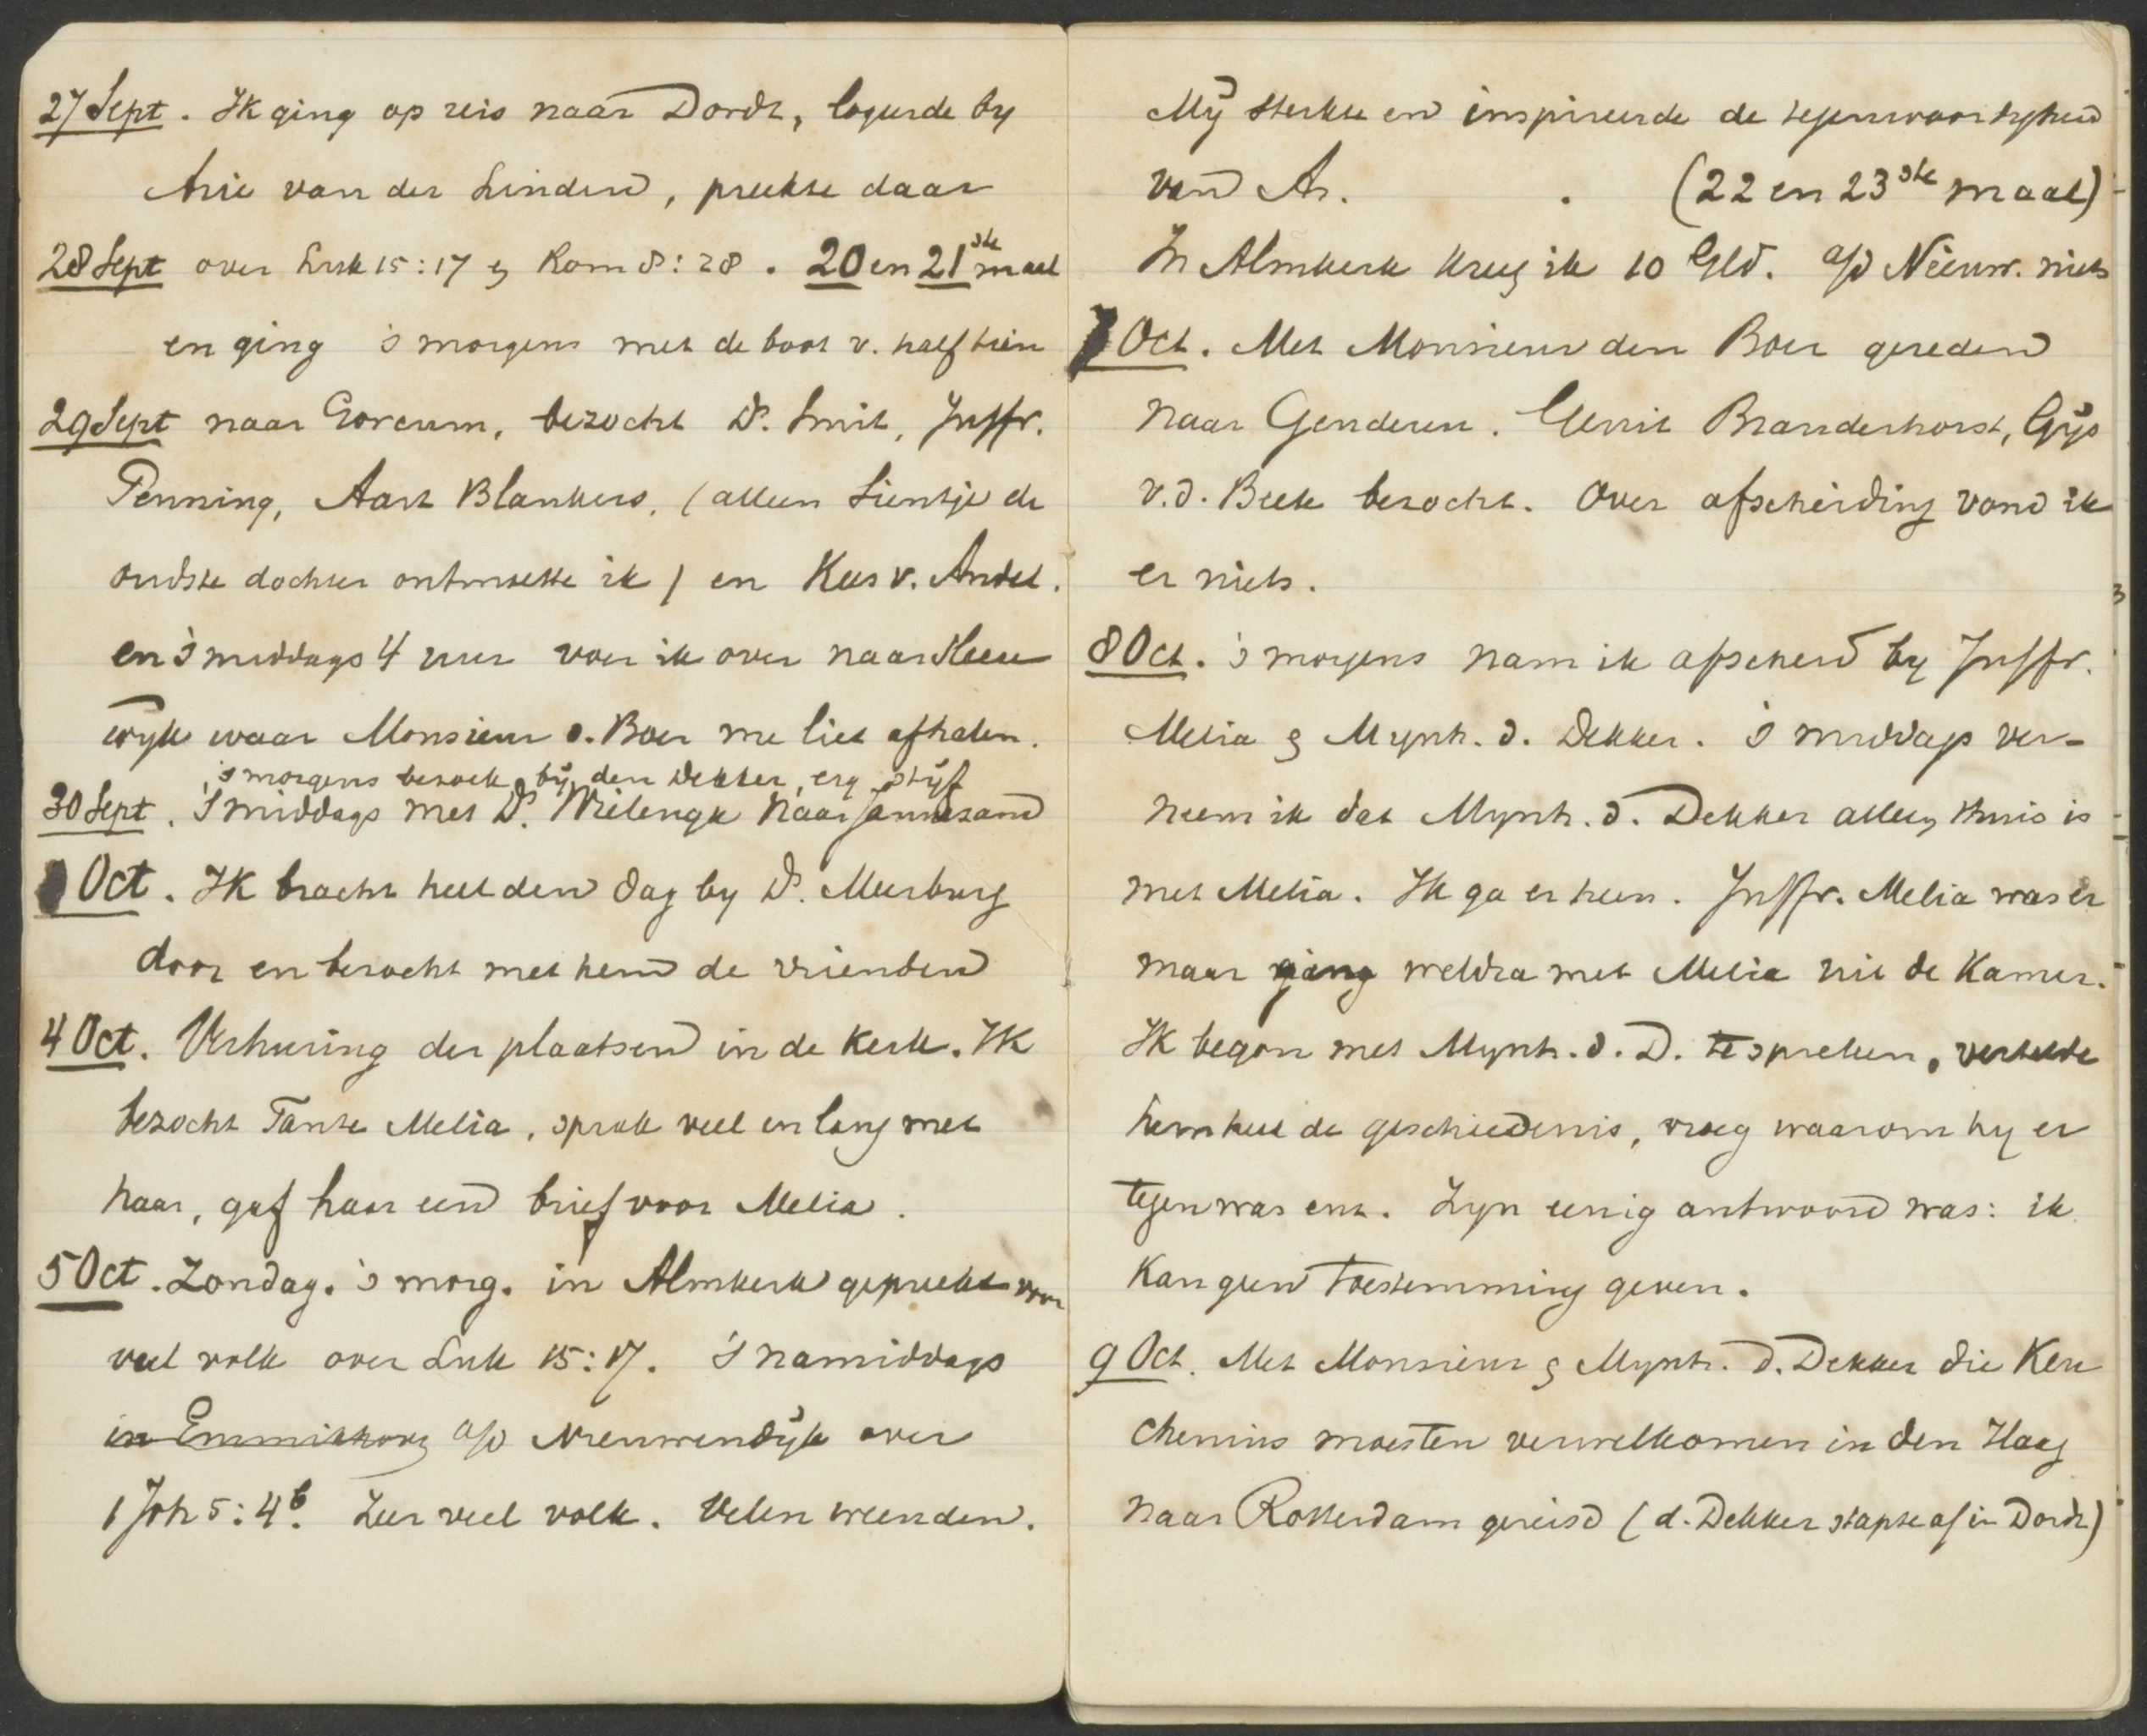 27 Sept. Ik ging op reis naar Dordt, logeerde by
Arie van der Linden, preekte daar
28 Sept over Luk 15:17 en Rom 8:28. 20 en 21ste maal
en ging 's morgens met de boot v. half tien
29 Sept naar Gorcum, bezocht Ds. Smit, Juffr.
Penning, Aart Blankers, (alleen Sientje de
oudste dochter ontmoette ik) en Kees v. Andel.
en 's middags 4 uur voer ik over naar Sleeu
wyk waar Monsieur d. Boer me liet afhalen.
's morgens bezoek bij den Dekker, erg stijf
30 Sept. 's middags met Ds. Wielenga naar Jannezand
Oct. Ik bracht heel den dag by Ds. Meerburg
door en bezocht met hem de vrienden
4 Oct. Verhuring der plaatsen in de kerk. Ik
bezocht Tante Melia, sprak veel en lang met
haar, gaf haar een brief voor Melia.
5 Oct. Zondag. 's morg. in Almkerk gepreekt voor
veel volk over Luk 15:17. 's namiddags
in Emmikhoven a/d Nieuwendijk over
1 Joh 5:4b. Zeer veel volk. Velen weenden.
Mij sterkte en inspireerde de tegenwoordigheid
van Ar. . (22 en 23ste maal)
In Almkerk kreeg ik 10 Gld. a/d Nieuw. niets
7 Oct. Met Monsieur den Boer gereden
naar Genderen. Gerrit Branderhorst, Gijs
v.d. Beek bezocht. Over afscheiding vond ik
er niets.
8 Oct. 's morgens nam ik afscheid by Juffr.
Melia en Mynh. d. Dekker. 's middags ver-
neem ik dat Mynh. d. Dekker alleen thuis is
met Melia. Ik ga er heen. Juffr. Melia was er
maar ging weldra met Melia uit de Kamer.
Ik begon met Mynh. d. D. te spreken, vertelde
hem heel de geschiedenis, vroeg waarom hy er
tegen was enz. Zyn eenig antwoord was: ik
kan geen toestemming geven.
9 Oct. Met Monsieur en Mynh. d. Dekker die Keu
chenius moesten verwelkomen in den Haag
naar Rotterdam gereisd (d. Dekker stapte af in Dordt)